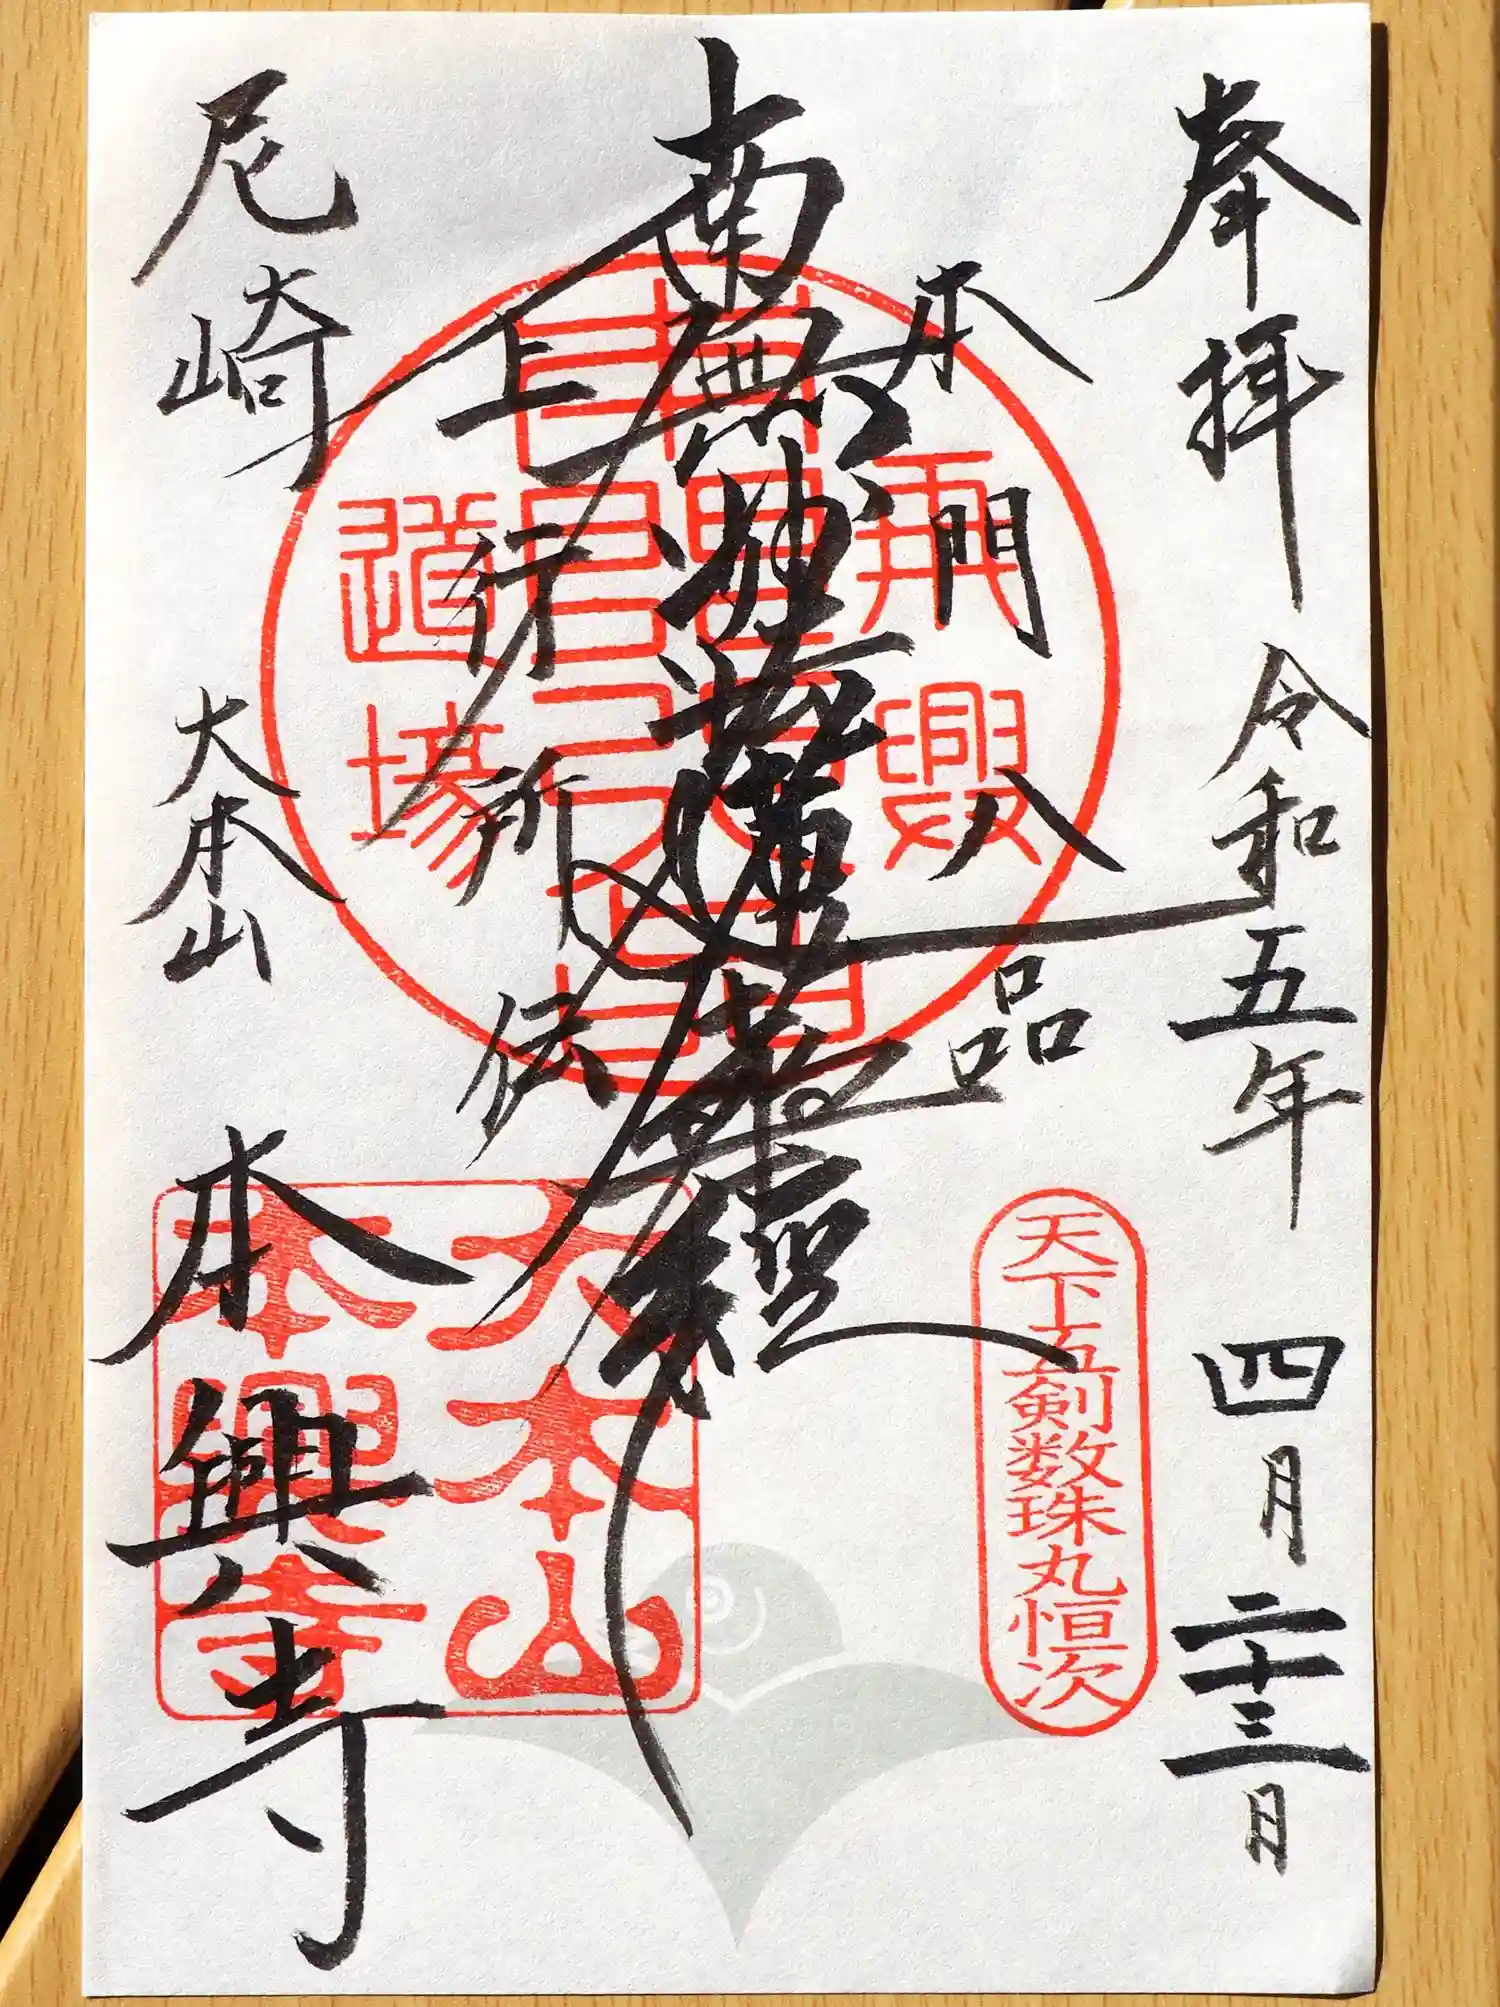 奉拝 令和五年 四月二十三日
本門八品
南無妙法蓮華経
上行所伝
尼崎 大本山 本興寺
道場
大本山
本興寺
天下五剣数珠丸恒次